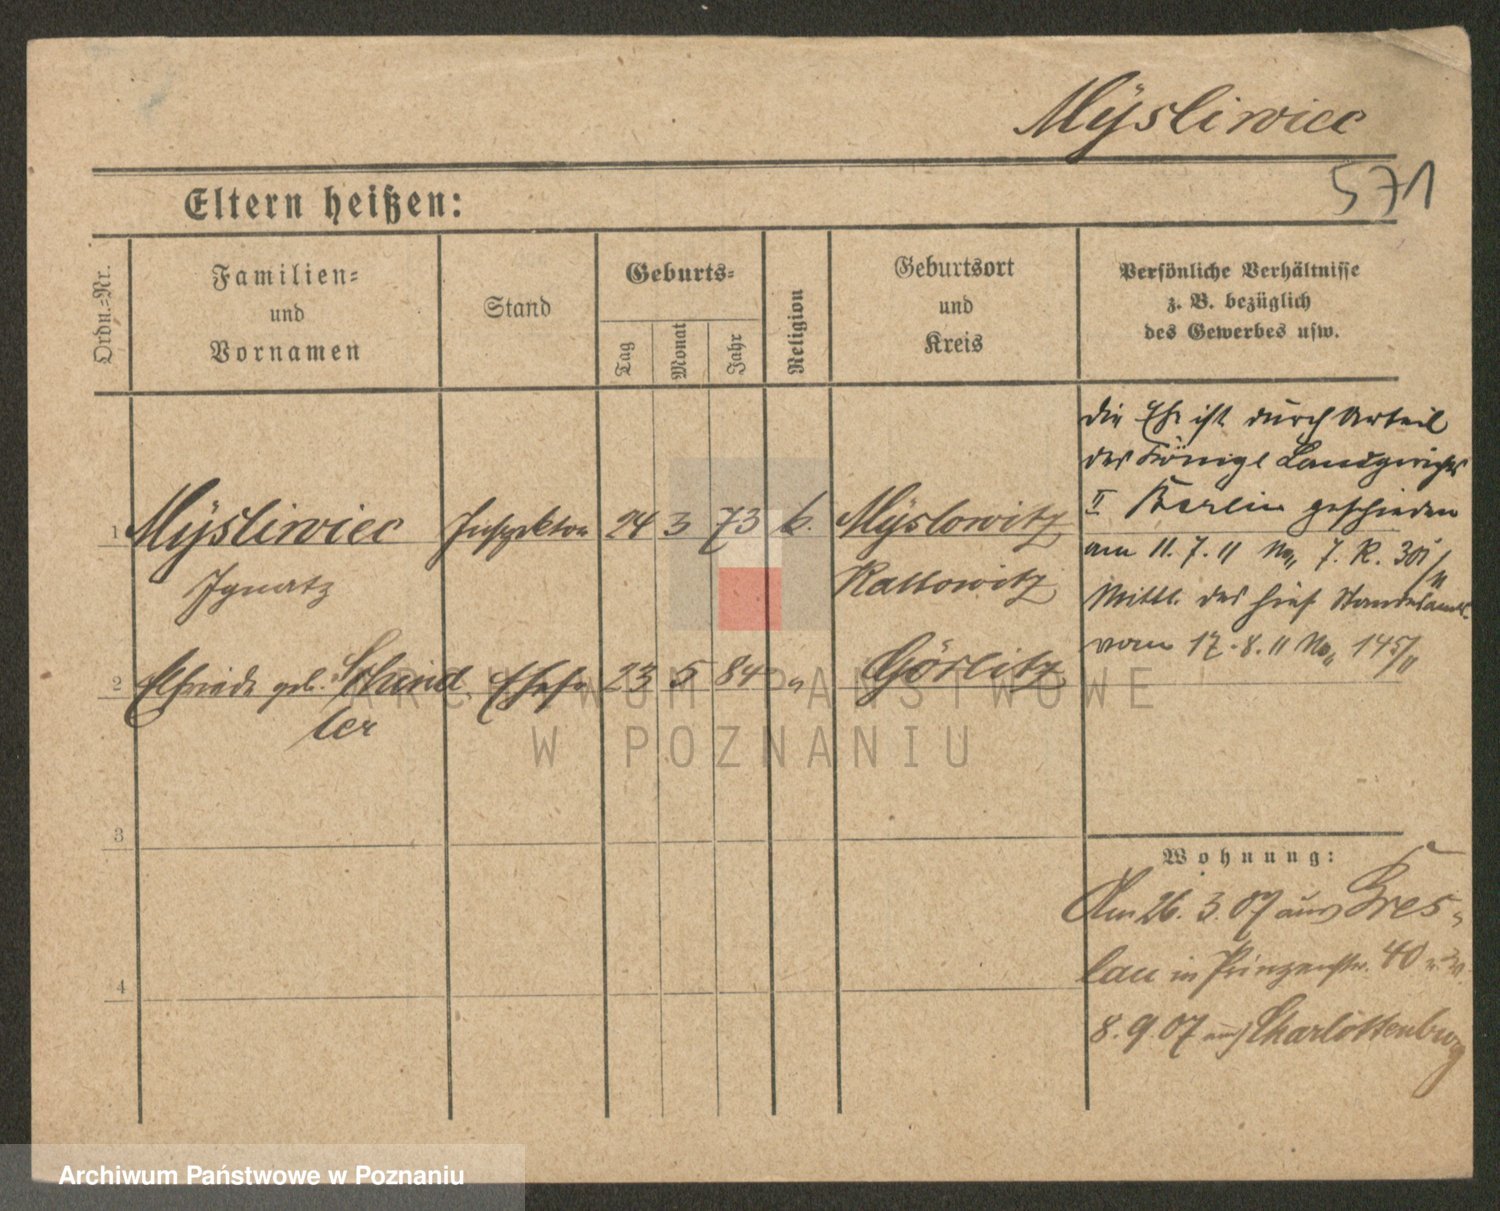 Mÿsliwiec
571
Eltern heißen:
Ordn.-Nr.
Familien-
und
Vornamen
Stand
Geburts-
Tag
Monat
Jahr
Religion
Geburtsort
und
Kreis
Persönliche Verhältnisse
z. B. bezüglich
des Gewerbes usw.
1 Mÿsliwiec Inspektor 24 3 73 k. Mÿslowitz
Ignatz Kattowitz
2 Elfriede geb. Schind Ehefr 23 5 84 " Görlitz
ler
3
4
die Ehe ist durch Urteil
des Königl Landgerichts
II Berlin geschieden
am 11. 7. 11 No 7. R. 301/11
Mittl. des hies. Standesamts
vom 17. 8. 11 No 145/11
Wohnung:
Am 26. 3. 07 aus Bres-
lau in Prinzenstr. 40
8. 9. 07 Charlottenburg
ARCHIWUM PAŃSTWOWE
W POZNANIU
Archiwum Państwowe w Poznaniu